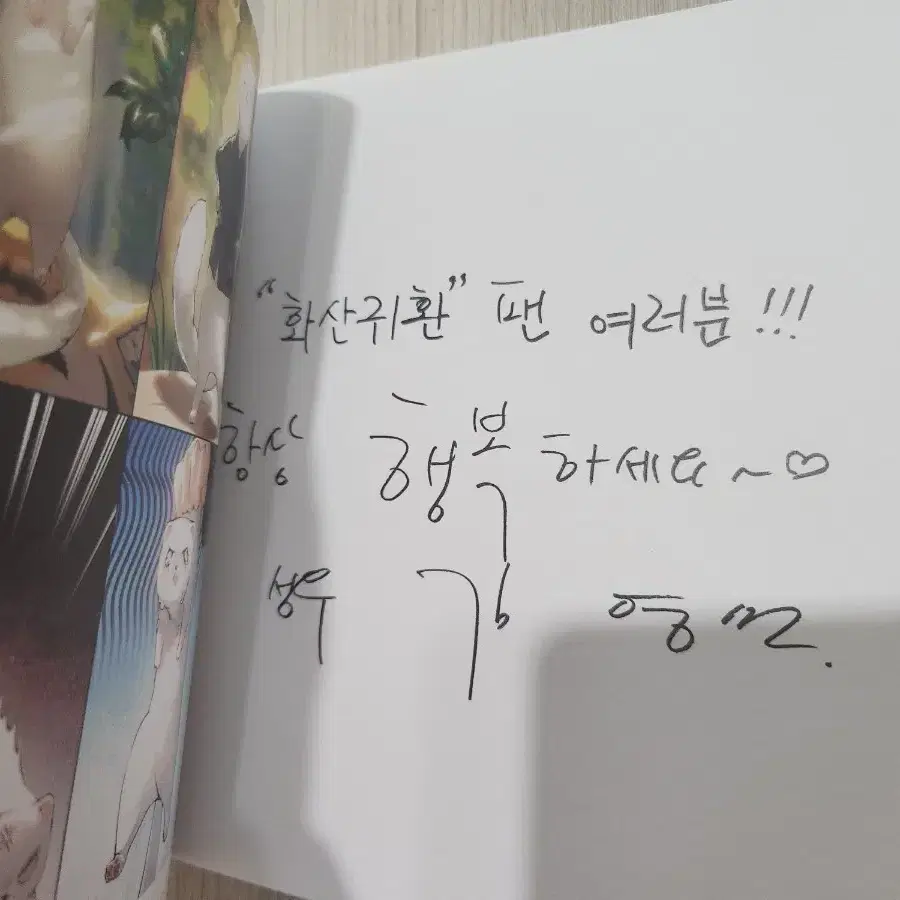 "화산귀환" 팬 여러분!!!
항상 행복하세요~♡
성우 김 영선.